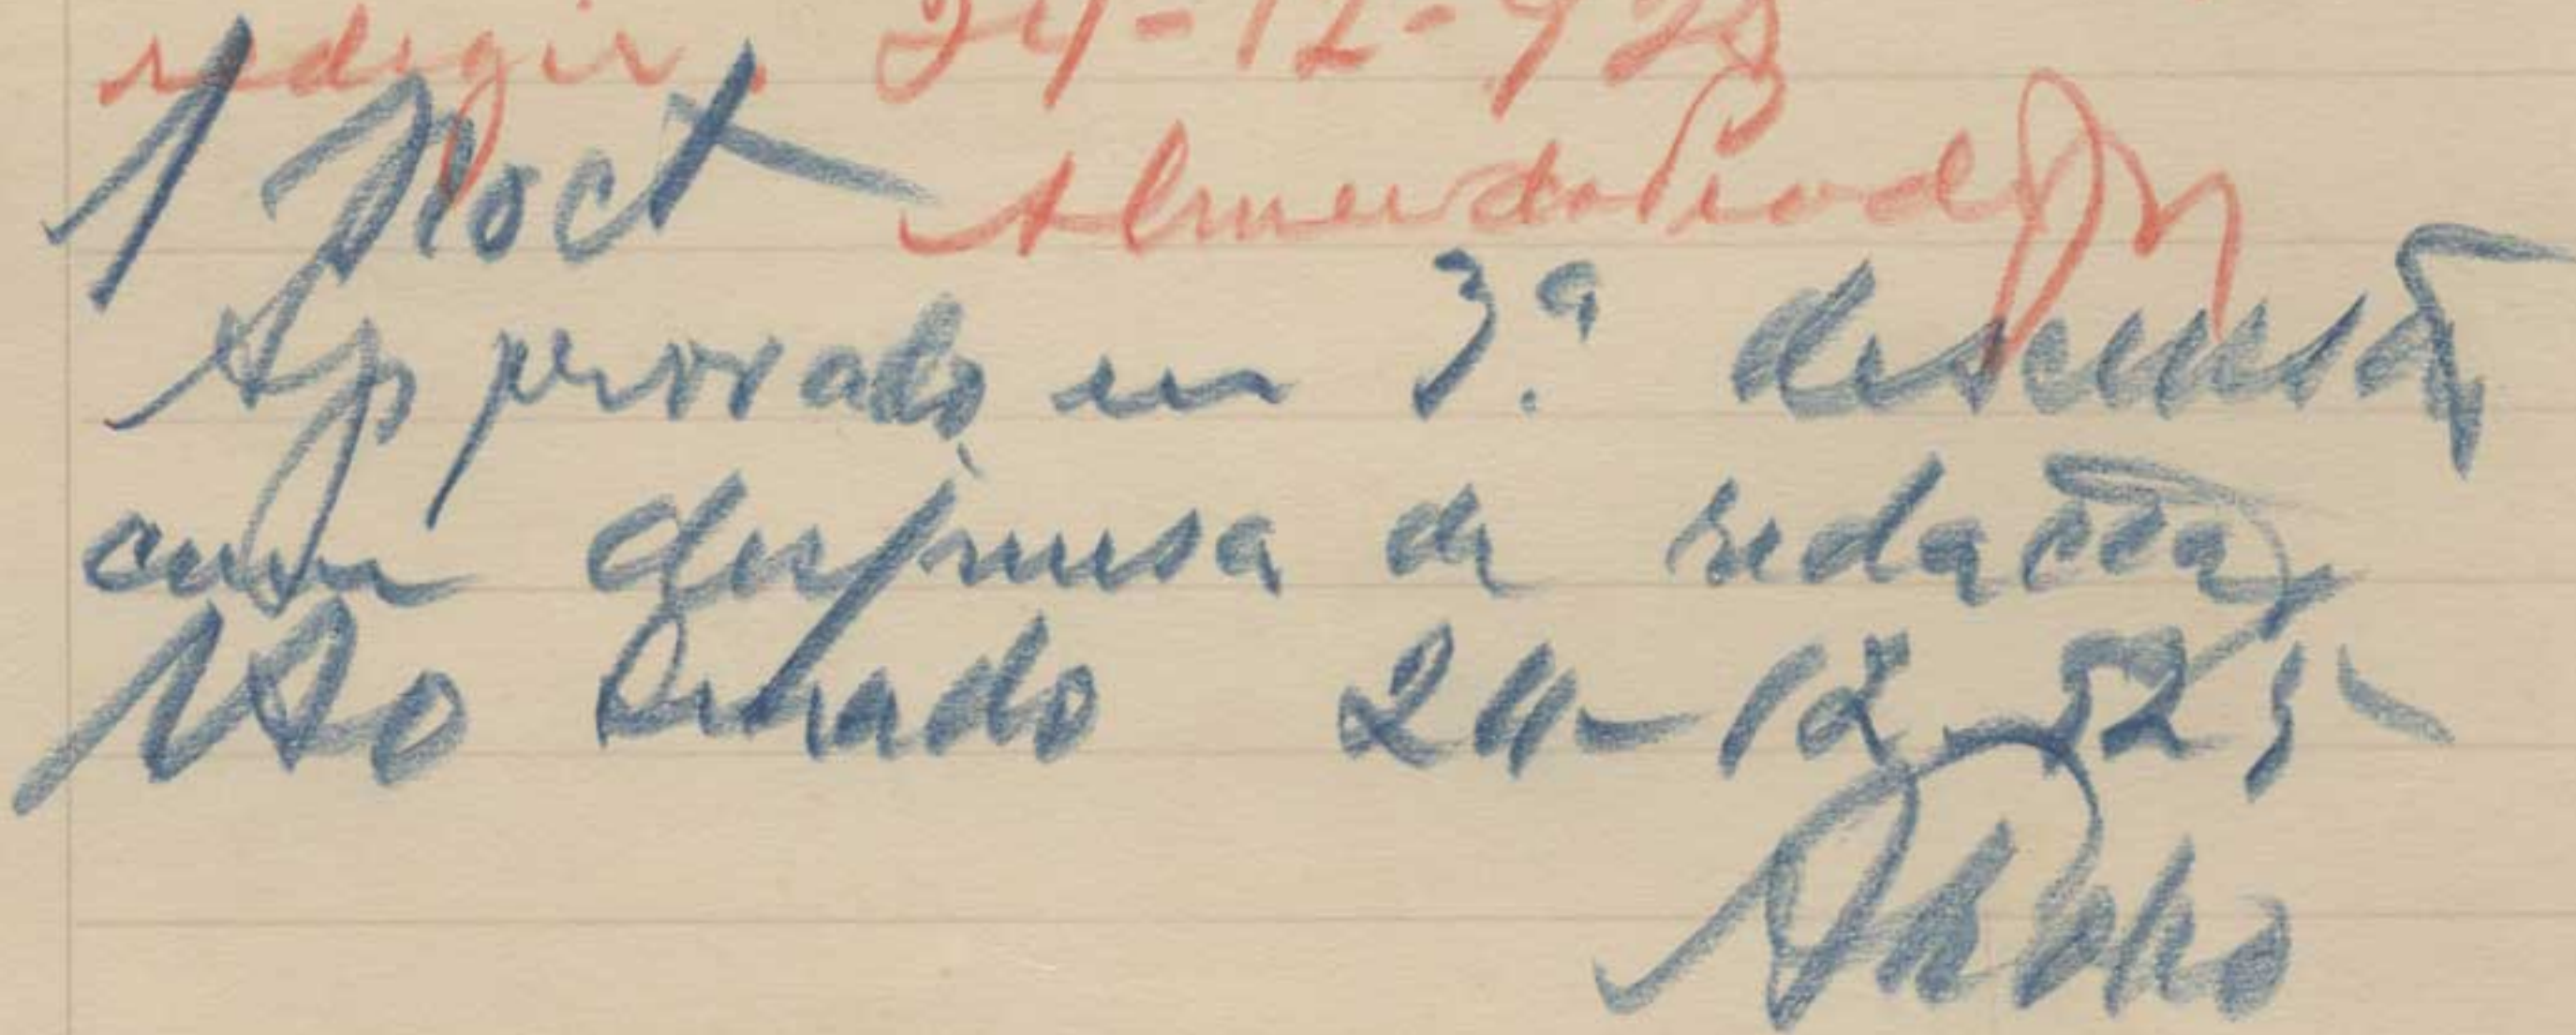 redigir. 24-12-925
Almeida Prado Jr
1 Noct
Approvado em 3.ª discussão
com dispensa de redacção
Ao Senado 24-12-925